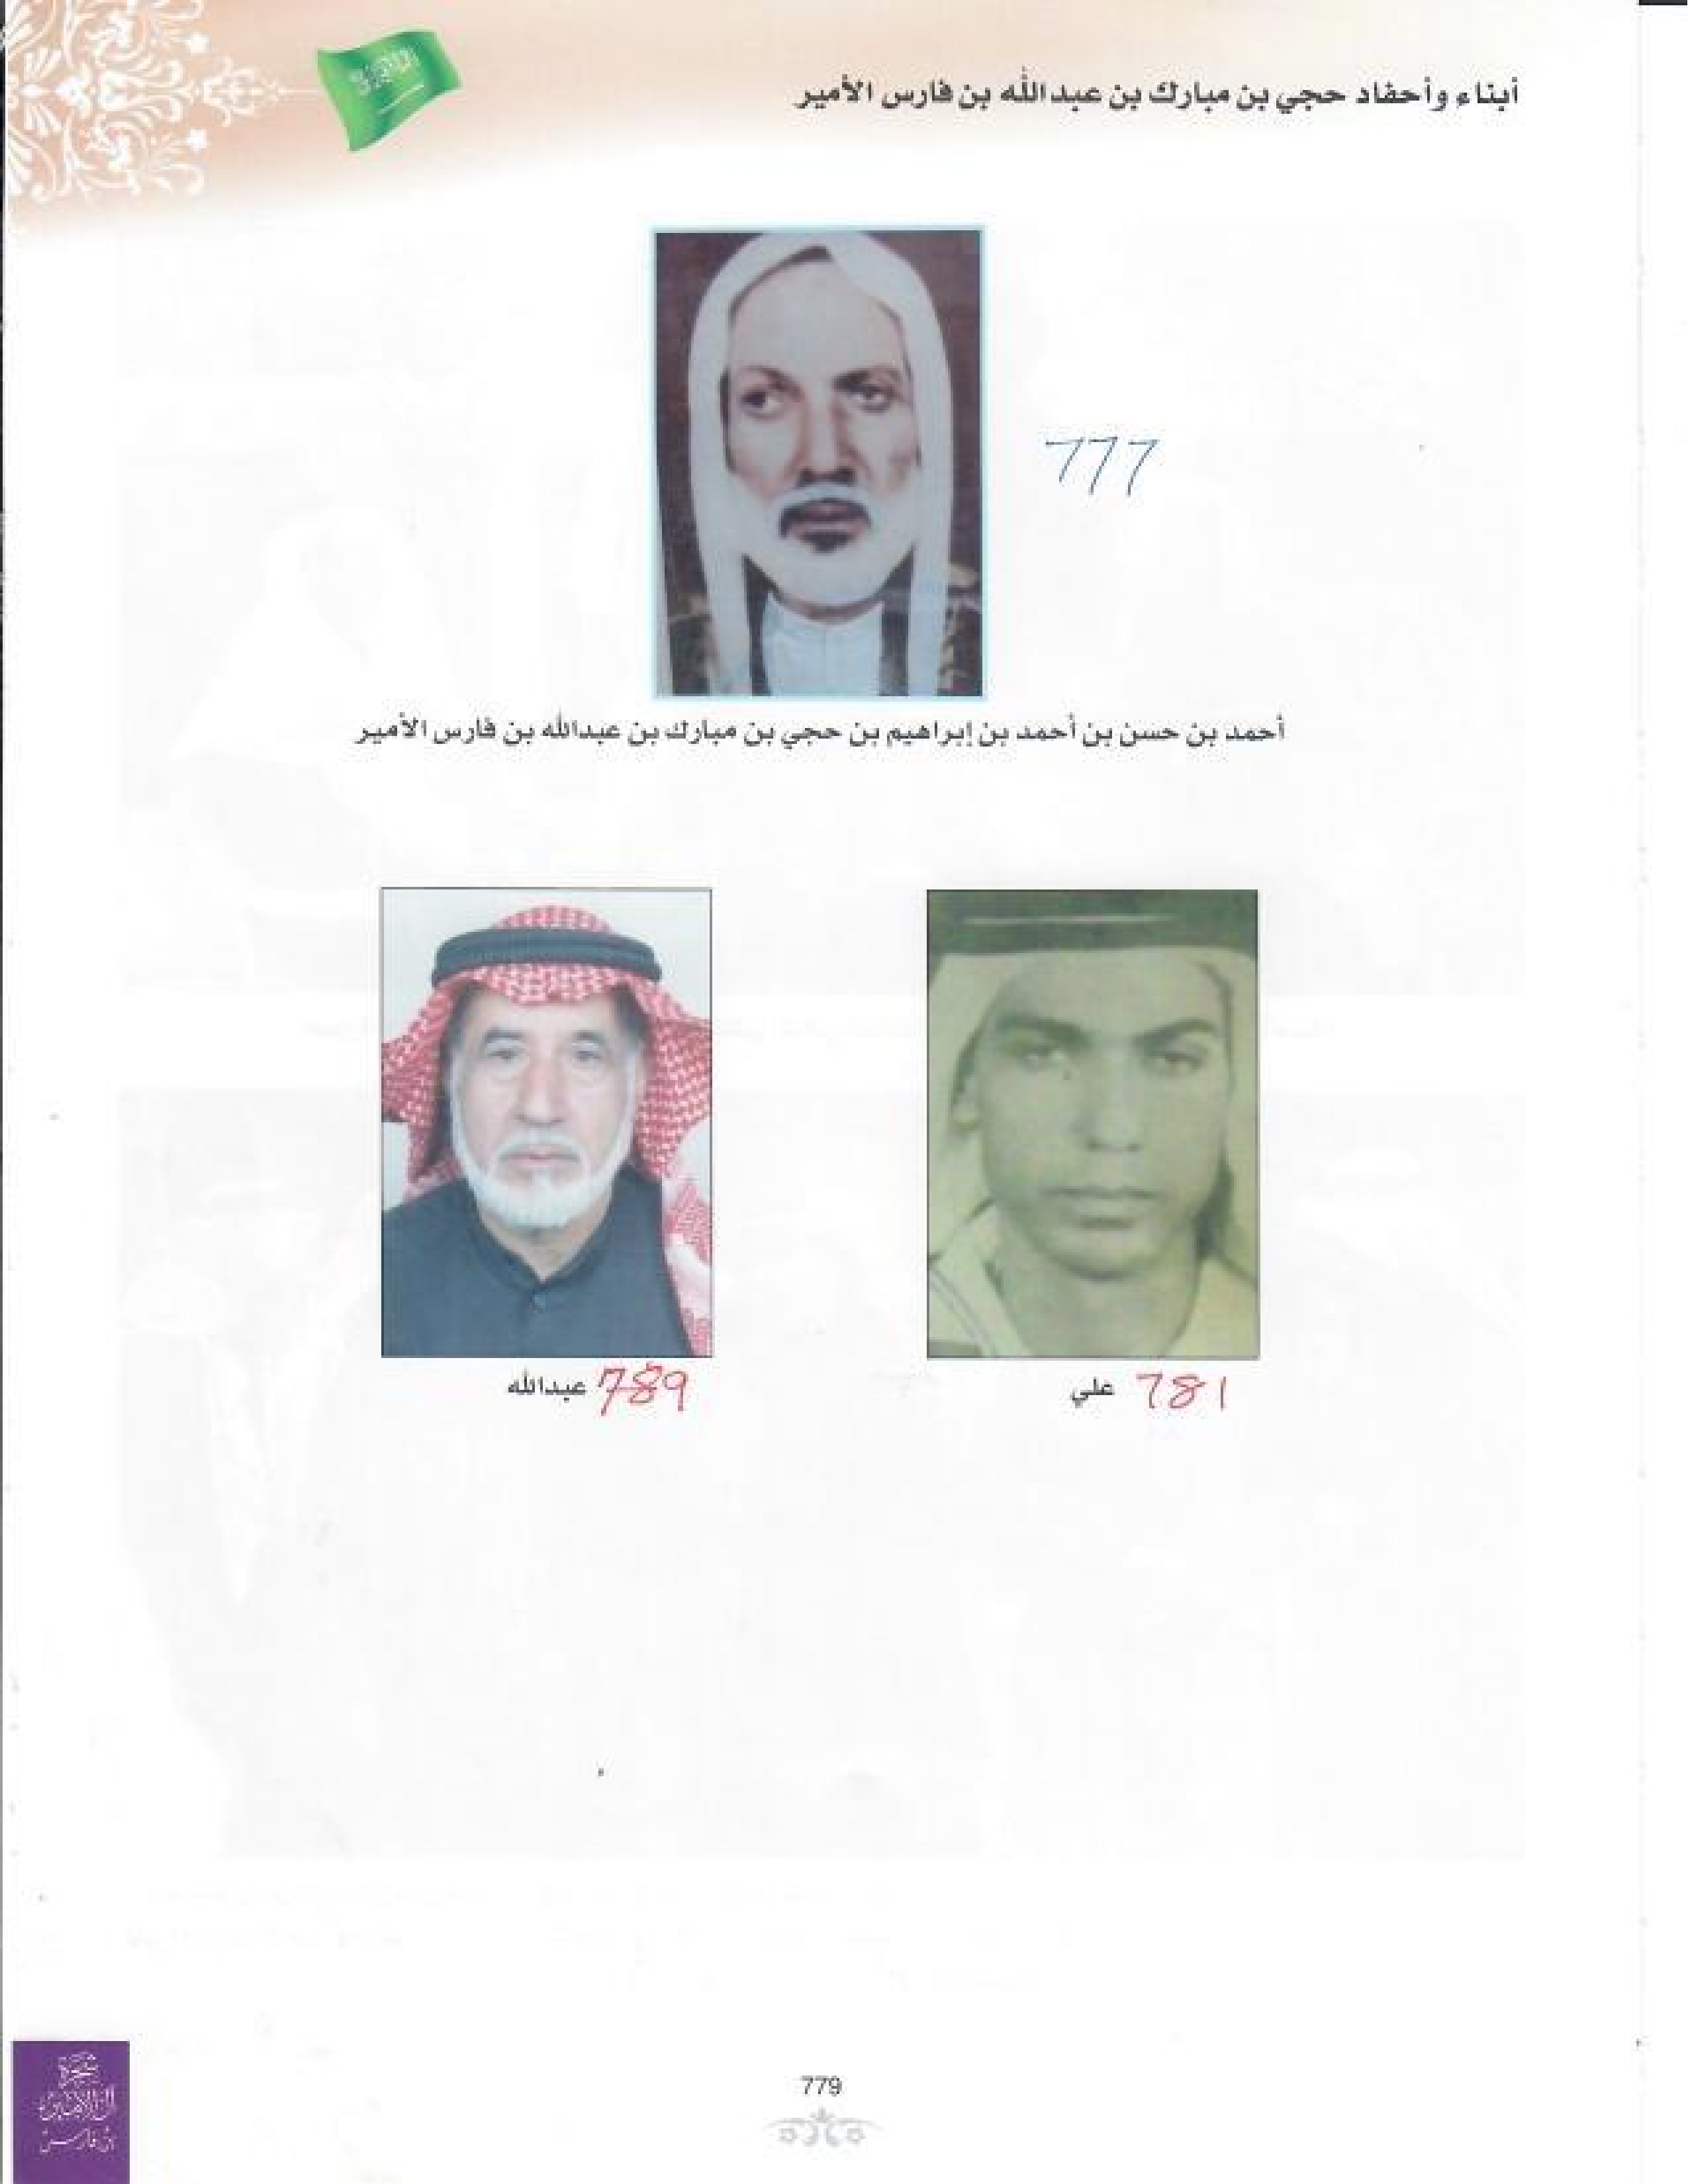 أبناء وأحفاد حجي بن مبارك بن عبد الله بن فارس الأمير
777
أحمد بن حسن بن أحمد بن إبراهيم بن حجي بن مبارك بن عبدالله بن فارس الأمير
781 علي
789 عبدالله
شجرة
آل الأمير
بن فارس
779